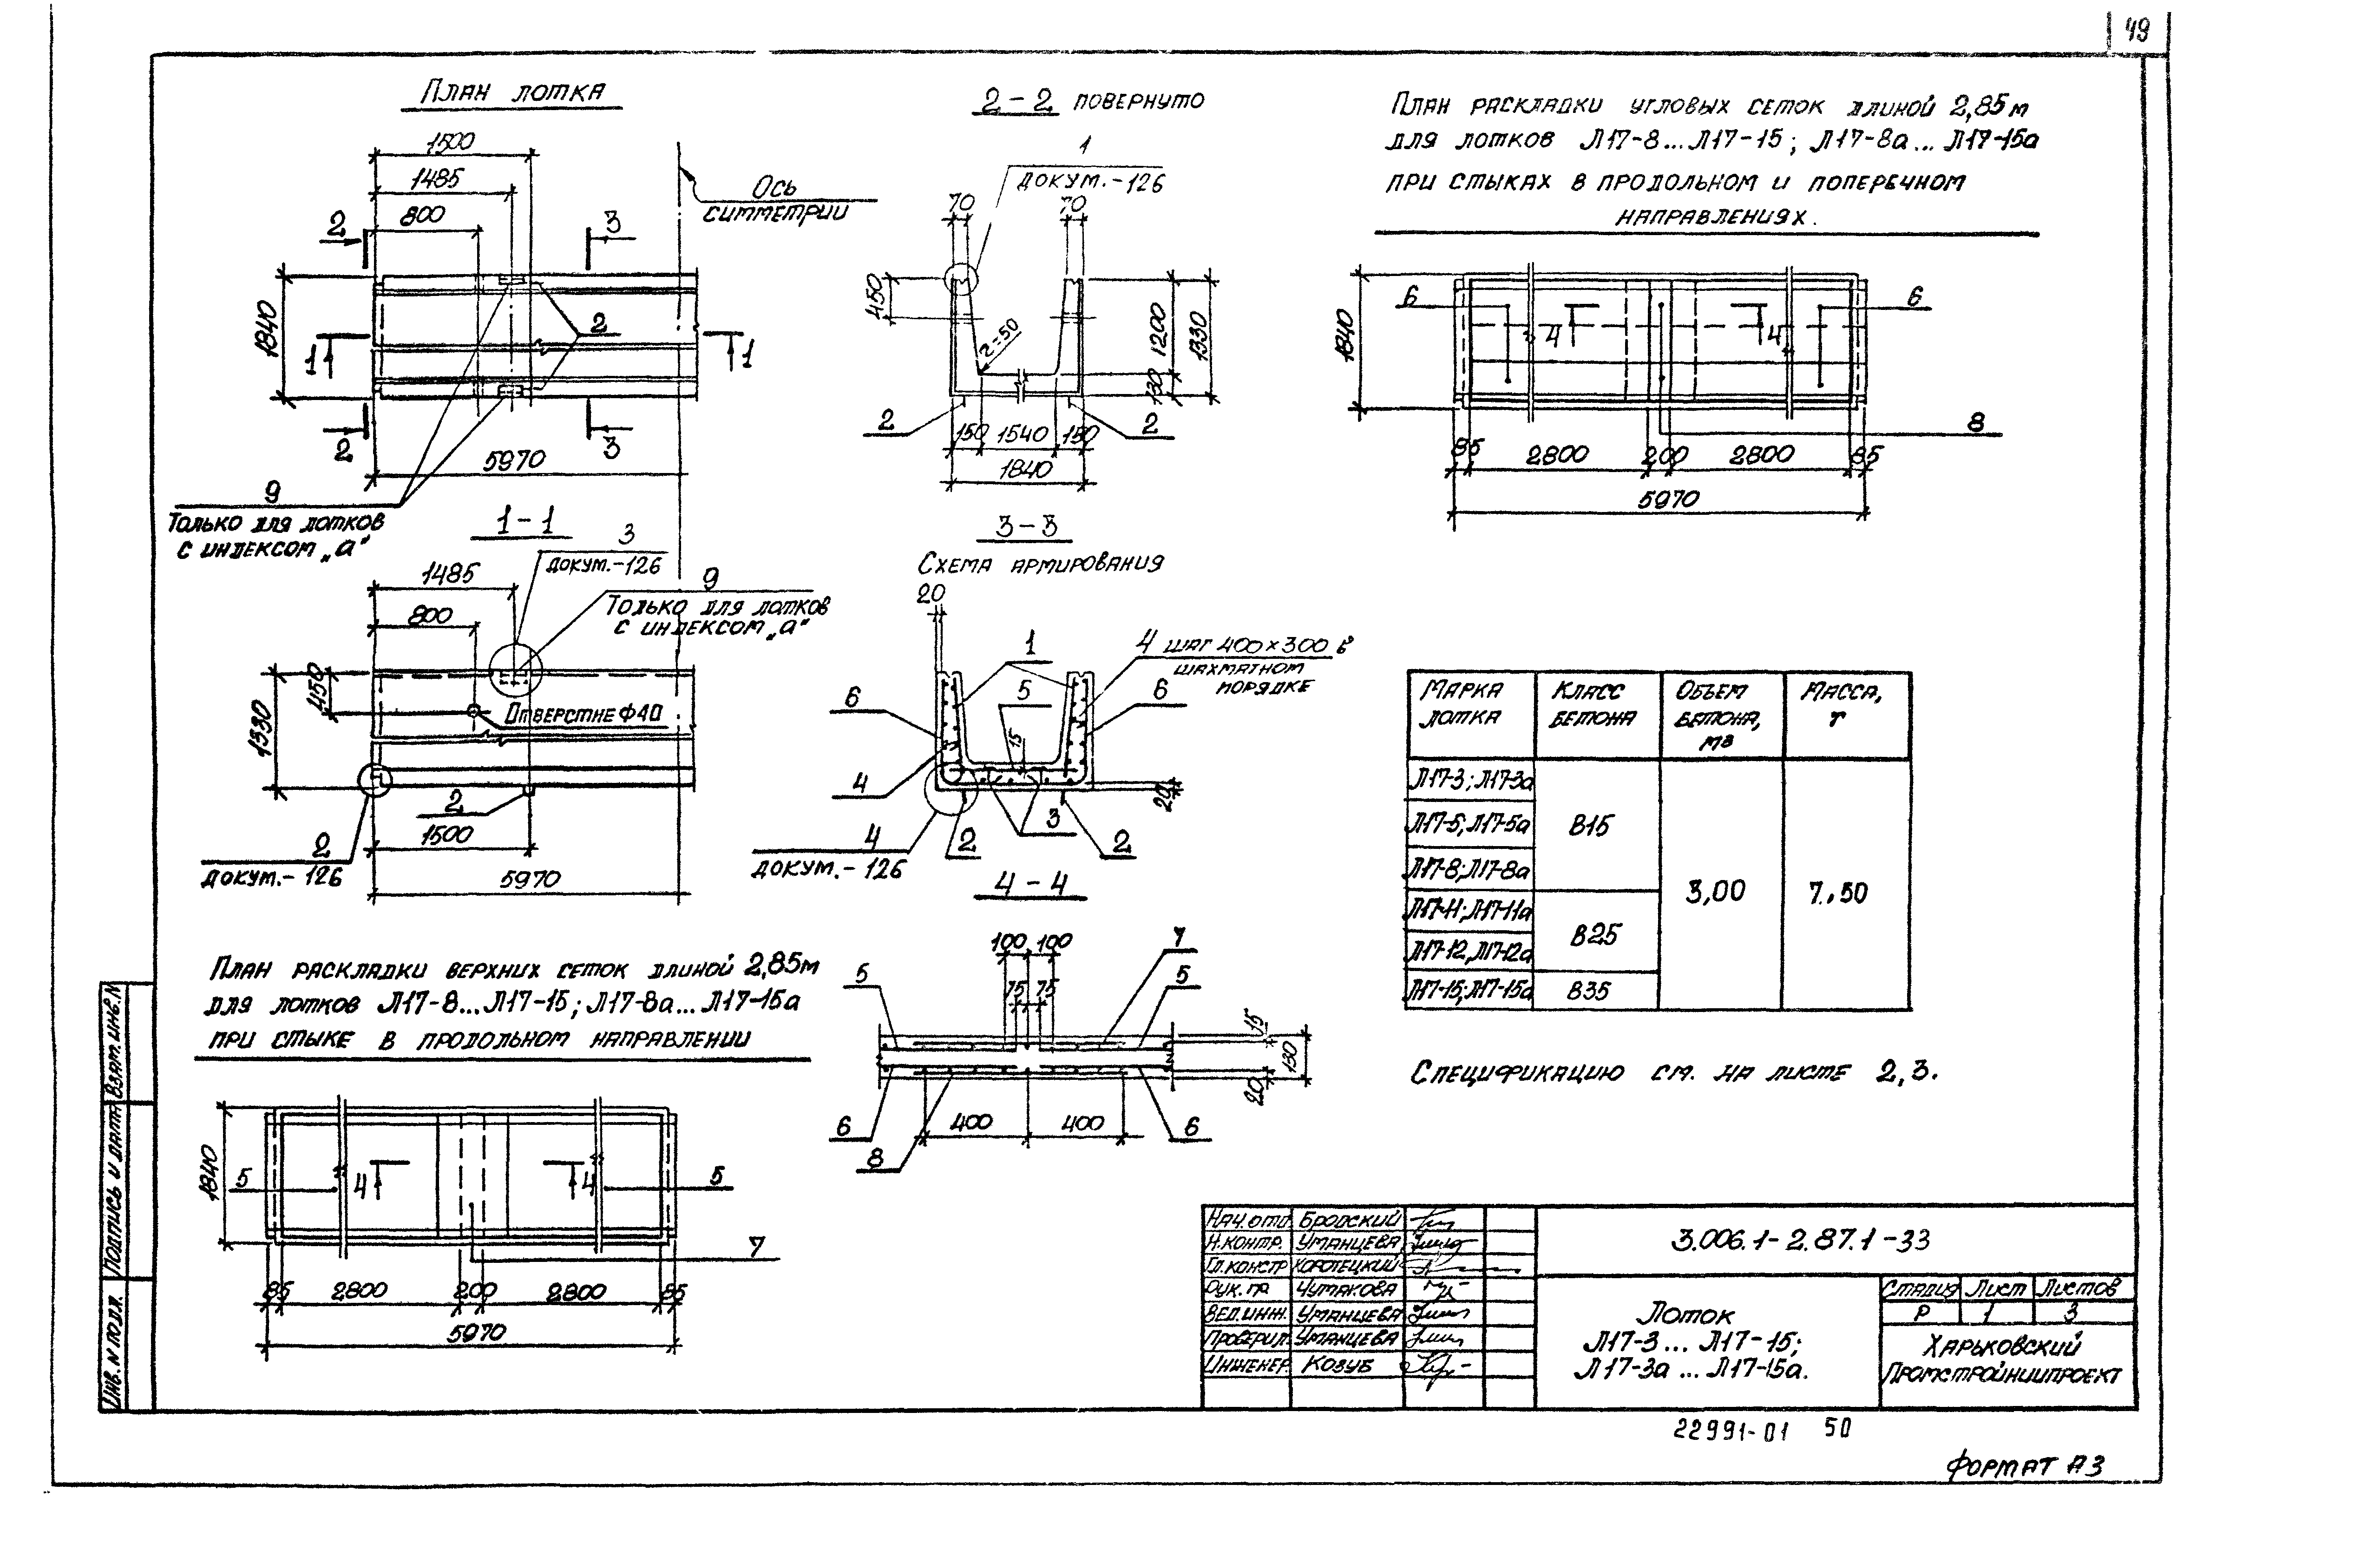 49
План лотка
1500
1485
800
Ось
симметрии
2
3
1840
2
1
1
2
3
5970
9
Только для лотков
с индексом „а"
2-2 повернуто
1
докум.-126
70
70
450
r=50
1200
1330
130
2
2
150
1540
150
1840
План раскладки угловых сеток длиной 2,85м
для лотков Л17-8...Л17-15; Л17-8а...Л17-15а
при стыках в продольном и поперечном
направлениях.
6
6
4
4
1840
8
85
2800
200
2800
85
5970
1-1
3
докум.-126
1485
9
Только для лотков
с индексом „а"
800
450
1330
Отверстие Ф40
2
2
докум.-126
1500
5970
3-3
Схема армирования
20
1
4 шаг 400×300 в
шахматном
порядке
5
6
6
15
4
20
3
4
докум.-126
2
2
4-4
100
100
7
5
5
75
75
15
130
20
400
400
6
6
8
Марка лотка
Класс бетона
Объем бетона, м3
Масса, т
Л17-3; Л17-3а
Л17-5; Л17-5а
В15
Л17-8; Л17-8а
3,00
7,50
Л17-11; Л17-11а
В25
Л17-12; Л17-12а
Л17-15; Л17-15а
В35
Спецификацию см. на листе 2, 3.
План раскладки верхних сеток длиной 2,85м
для лотков Л17-8...Л17-15; Л17-8а...Л17-15а
при стыке в продольном направлении
1840
5
4
4
5
7
85
2800
200
2800
85
5970
Взам. инв. N
Подпись и дата
Инв. N подл.
Нач. отд. Бродский
Н. контр. Уманцева
Гл. констр Коротецкий
Рук. гр Чумакова
Вед. инж. Уманцева
Проверил Уманцева
Инженер. Козуб
3.006.1-2.87.1-33
Лоток
Л17-3... Л17-15;
Л17-3а... Л17-15а.
Стадия Лист Листов
Р 1 3
Харьковский
Промстройниипроект
22991-01 50
Формат А3